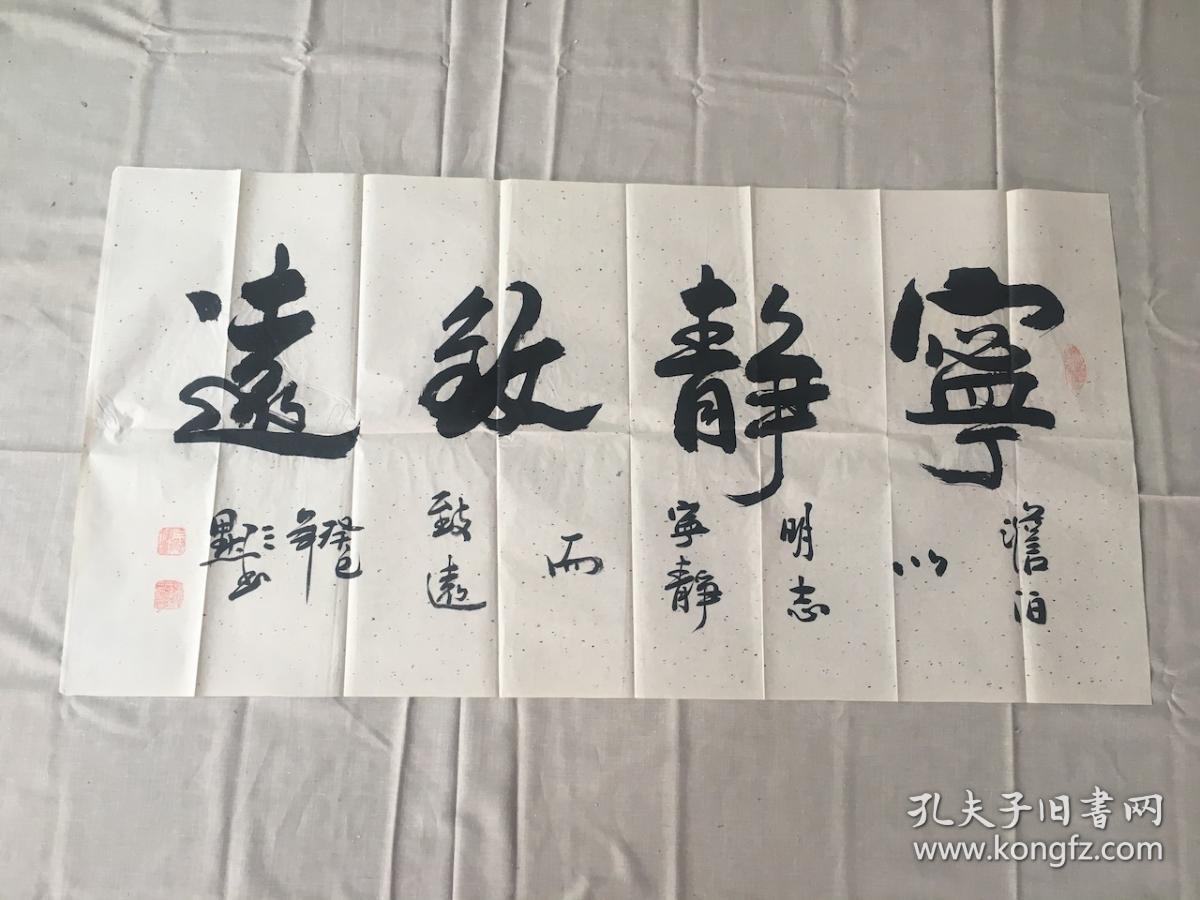 寧靜致遠
澹泊
以
明志
寧靜
而
致遠
癸巳
年
孔夫子旧書网
www.kongfz.com